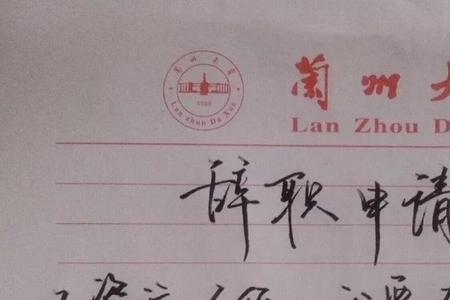 兰州大
Lan Zhou D
兰州大学
1909
Lan zhou Da Xue
辞职申请